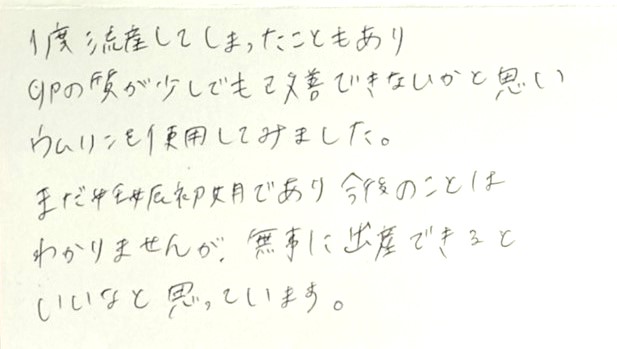 1度流産してしまったこともあり
卵の質が少しでも改善できないかと思い
ウムリンを使用してみました。
まだ妊娠初期であり今後のことは
わかりませんが、無事に出産できると
いいなと思っています。